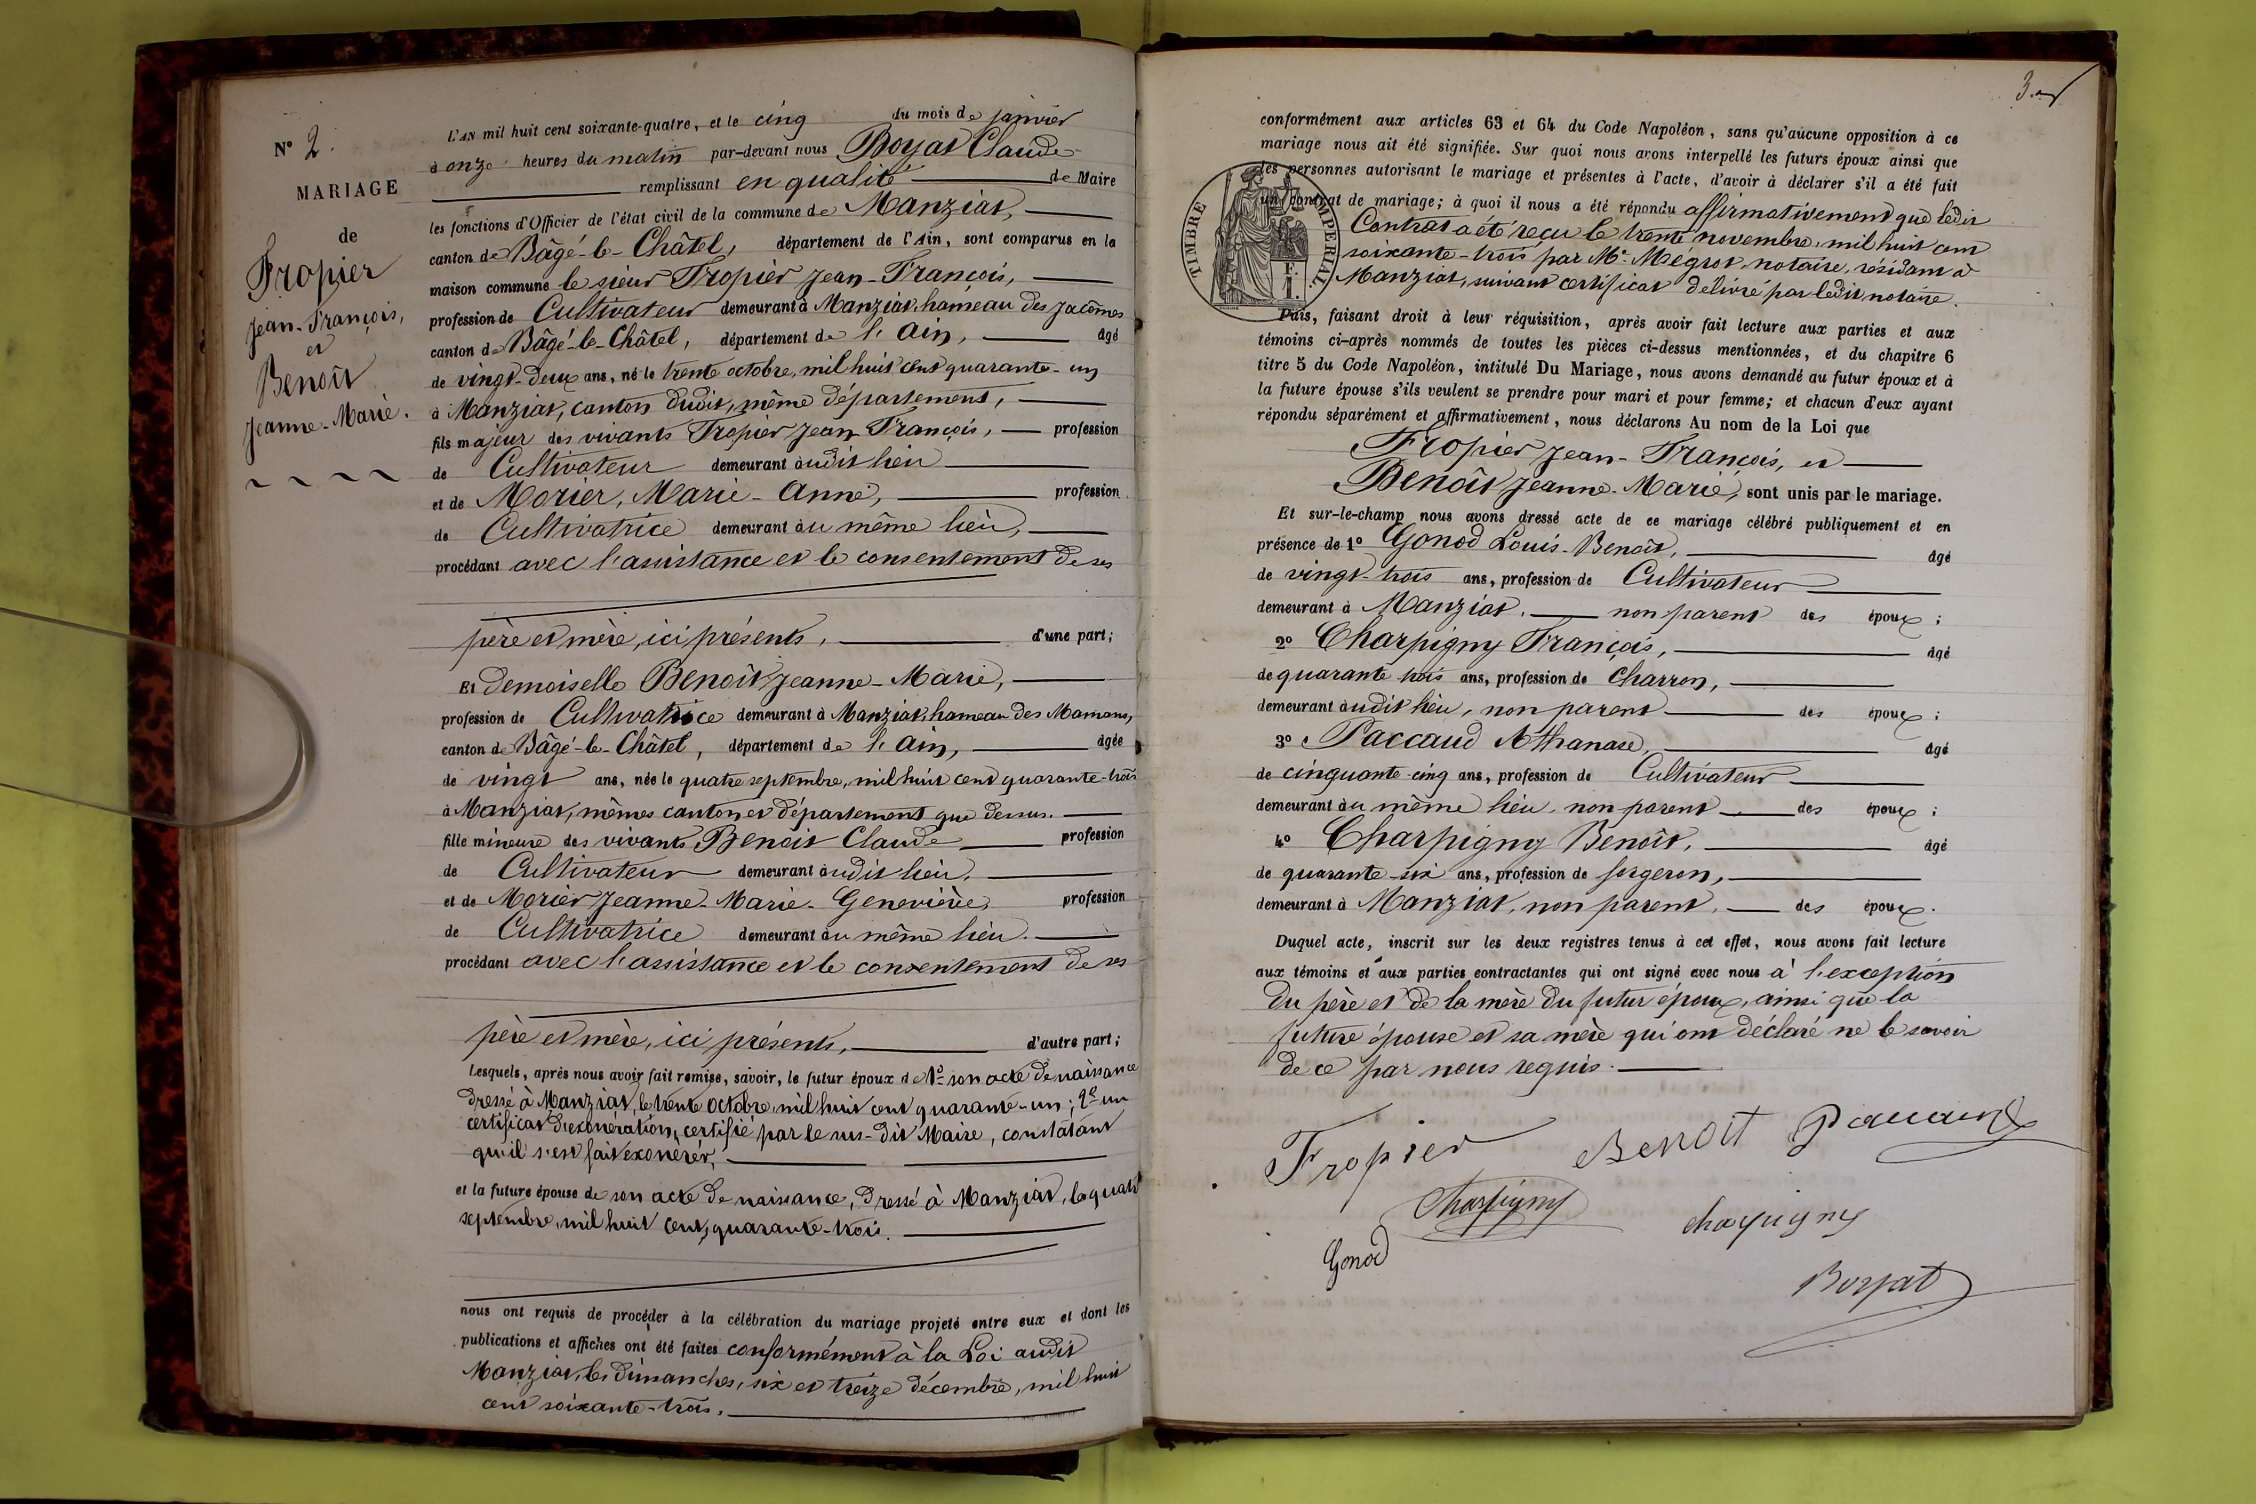 N° 2.
MARIAGE
de
Fropier
Jean-François,
et
Benoît
Jeanne-Marie.
L'AN mil huit cent soixante-quatre, et le cinq du mois de janvier
à onze heures du matin par-devant nous Boyat Claude
remplissant en qualité de Maire
les fonctions d'Officier de l'état civil de la commune de Manziat,
canton de Bâgé-le-Châtel, département de l'Ain, sont comparus en la
maison commune le sieur Fropier Jean-François,
profession de Cultivateur demeurant à Manziat, hameau des Jacômes
canton de Bâgé-le-Châtel, département de l'Ain, âgé
de vingt-deux ans, né le trente octobre, mil huit cent quarante-un
à Manziat, canton dudit, même département,
fils majeur des vivants Fropier Jean François, profession
de Cultivateur demeurant audit lieu
et de Morier, Marie-Anne, profession
de Cultivatrice demeurant au même lieu,
procédant avec l'assistance et le consentement de ses
père et mère, ici présents, d'une part;
Et demoiselle Benoît Jeanne-Marie,
profession de Cultivatrice demeurant à Manziat, hameau des Mamans,
canton de Bâgé-le-Châtel, département de l'Ain, âgée
de vingt ans, née le quatre septembre, mil huit cent quarante-trois
à Manziat, mêmes canton et département que dessus.
fille mineure des vivants Benoit Claude profession
de Cultivateur demeurant audit lieu,
et de Morier Jeanne-Marie-Geneviève, profession
de Cultivatrice demeurant au même lieu.
procédant avec l'assistance et le consentement de ses
père et mère, ici présents, d'autre part;
Lesquels, après nous avoir fait remise, savoir, le futur époux de 1° son acte de naissance
dressé à Manziat, le trente octobre, mil huit cent quarante-un; 2° un
certificat d'exonération, certifié par le sus-dit Maire, constatant
qu'il s'est fait exonérer,
et la future épouse de son acte de naissance, dressé à Manziat, le quatre
septembre, mil huit cent, quarante-trois.
nous ont requis de procéder à la célébration du mariage projeté entre eux et dont les
publications et affiches ont été faites conformément à la Loi audit
Manziat, les dimanches, six et treize décembre, mil huit
cent soixante-trois.
conformément aux articles 63 et 64 du Code Napoléon, sans qu'aucune opposition à ce
mariage nous ait été signifiée. Sur quoi nous avons interpellé les futurs époux ainsi que
les personnes autorisant le mariage et présentes à l'acte, d'avoir à déclarer s'il a été fait
un contrat de mariage; à quoi il nous a été répondu affirmativement que ledit
Contrat a été reçu le trente novembre, mil huit cent
soixante-trois par Me Mégrot, notaire, résidant à
Manziat, suivant certificat délivré par ledit notaire.
TIMBRE IMPERIAL
Puis, faisant droit à leur réquisition, après avoir fait lecture aux parties et aux
témoins ci-après nommés de toutes les pièces ci-dessus mentionnées, et du chapitre 6
titre 5 du Code Napoléon, intitulé Du Mariage, nous avons demandé au futur époux et à
la future épouse s'ils veulent se prendre pour mari et pour femme; et chacun d'eux ayant
répondu séparément et affirmativement, nous déclarons Au nom de la Loi que
Fropier Jean-François, et
Benoît Jeanne-Marie, sont unis par le mariage.
Et sur-le-champ nous avons dressé acte de ce mariage célébré publiquement et en
présence de 1° Gonod Louis-Benoît, âgé
de vingt-trois ans, profession de Cultivateur
demeurant à Manziat. non parent des époux;
2° Charpigny François, âgé
de quarante trois ans, profession de Charron,
demeurant audit lieu, non parent des époux;
3° Paccaud Athanase, âgé
de cinquante-cinq ans, profession de Cultivateur
demeurant au même lieu, non parent des époux;
4° Charpigny Benoît, âgé
de quarante-six ans, profession de forgeron,
demeurant à Manziat, non parent, des époux.
Duquel acte, inscrit sur les deux registres tenus à cet effet, nous avons fait lecture
aux témoins et aux parties contractantes qui ont signé avec nous à l'exception
du père et de la mère du futur époux, ainsi que la
future épouse et sa mère qui ont déclaré ne le savoir
de ce par nous requis.
Fropier Benoit Paccaud
Charpigny charpigny
Gonod
Boyat